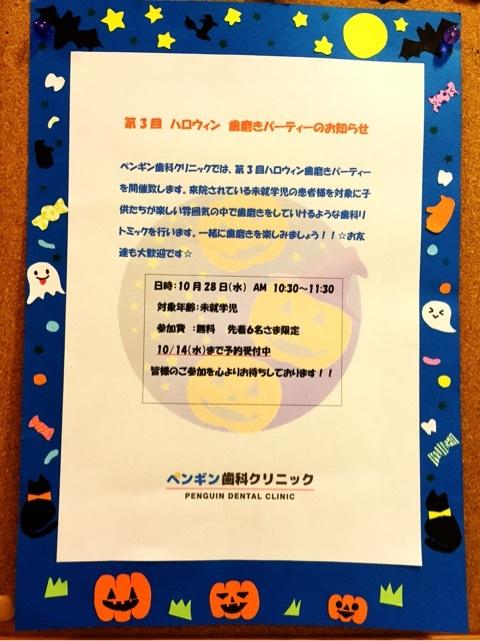 第３回　ハロウィン　歯磨きパーティーのお知らせ
ペンギン歯科クリニックでは、第３回ハロウィン歯磨きパーティー
を開催致します。来院されている未就学児の患者様を対象に子
供たちが楽しい雰囲気の中で歯磨きをしていけるような歯科リ
トミックを行います。一緒に歯磨きを楽しみましょう！！☆お友
達も大歓迎です☆
日時：１０月２８日(水)　AM　10:30～11:30
対象年齢：未就学児
参加費　：無料　先着６名さま限定
10/14(水)まで予約受付中
皆様のご参加を心よりお待ちしております！！
ペンギン歯科クリニック
PENGUIN DENTAL CLINIC